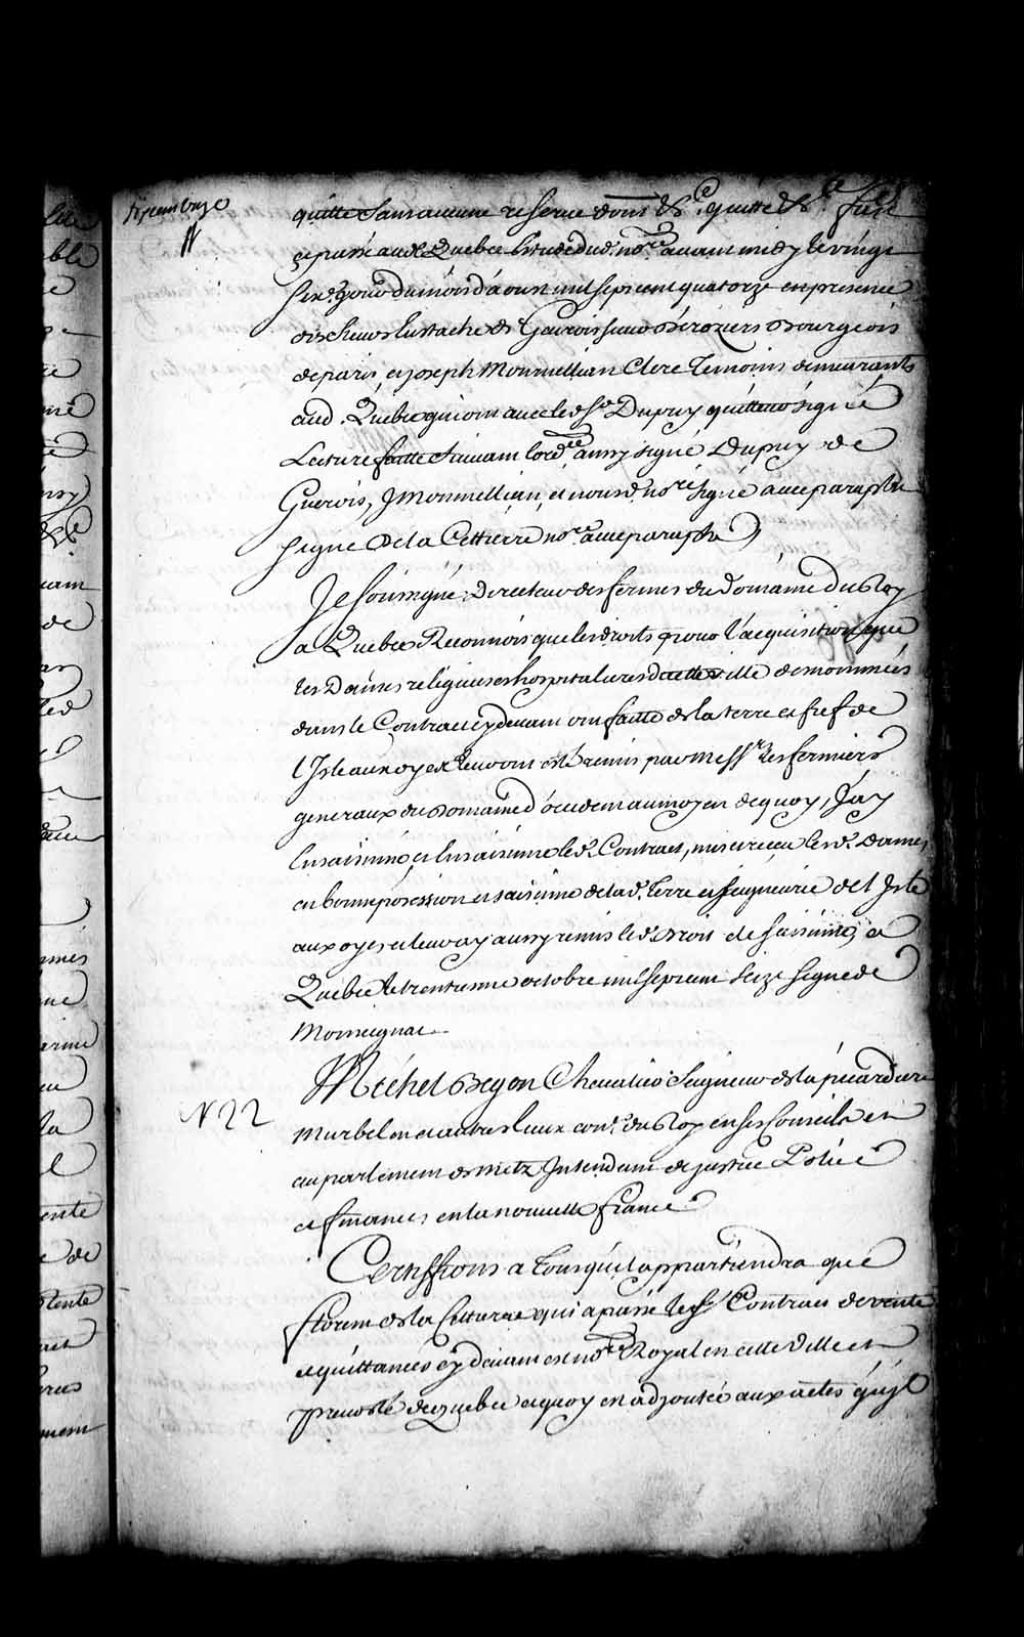 quitte sans aucune reserve dont &c. quitte &c. fait
et passé aud. Quebec Etude dud. nore. avant midy le vingt
sixe. jour du mois d'aoust mil sept cent quatorze en presence
des sieurs Eustache de Guerois sieur Deroziers Bourgeois
de paris, et joseph Monmellian Clerc Temoins demeurants
aud. Quebec qui ont avec led. Sr. Dupuy quittent signé
Lecture faitte suivant lordce. ainsy signé Dupuy de
Guerois, J Monmellian, et nousd. nore signé avec paraphe
signe De la Cettierre nore. avec paraphe
Je soussigné, Directeur des fermes du Domaine du Roy
a Quebec Reconnois que les droits pour l'acquisition que
les Dames religieuses hospitalieres de cette ville denommées
dans le Contract cy devant ont faitte de la terre et fief de
l'Isle aux oyes leur ont esté remis par Messrs. les fermiers
generaux du Domaine d'occident au moyen de quoy, J'ay
Ensaisiné et Ensaisine led. Contract, mis et reçeu lesd. Dames
en bonne possession et saisinne de lad. terre et seigneurie de l'Isle
aux oyes et leur ay aussy remis led. Droit de saisinne, a
Quebec le trentunme octobre mil sept cent seize signé de
Monseignat
N 22
Michel Begon Chevalier Seigneur de la picardiere
Murbelin et autres lieux conr. du Roy en ses Conseils et
au parlement de Metz Intendant de justice Police
et finances en la nouvelle france
Certiffions a Tous qu'il appartiendra que
florent de la Cetterae qui a passé les Contract de vente
et quittances cy devant est nore. Royal en cette Ville et
prevosté de Quebec et quoy en adjoutée aux actes qu'il